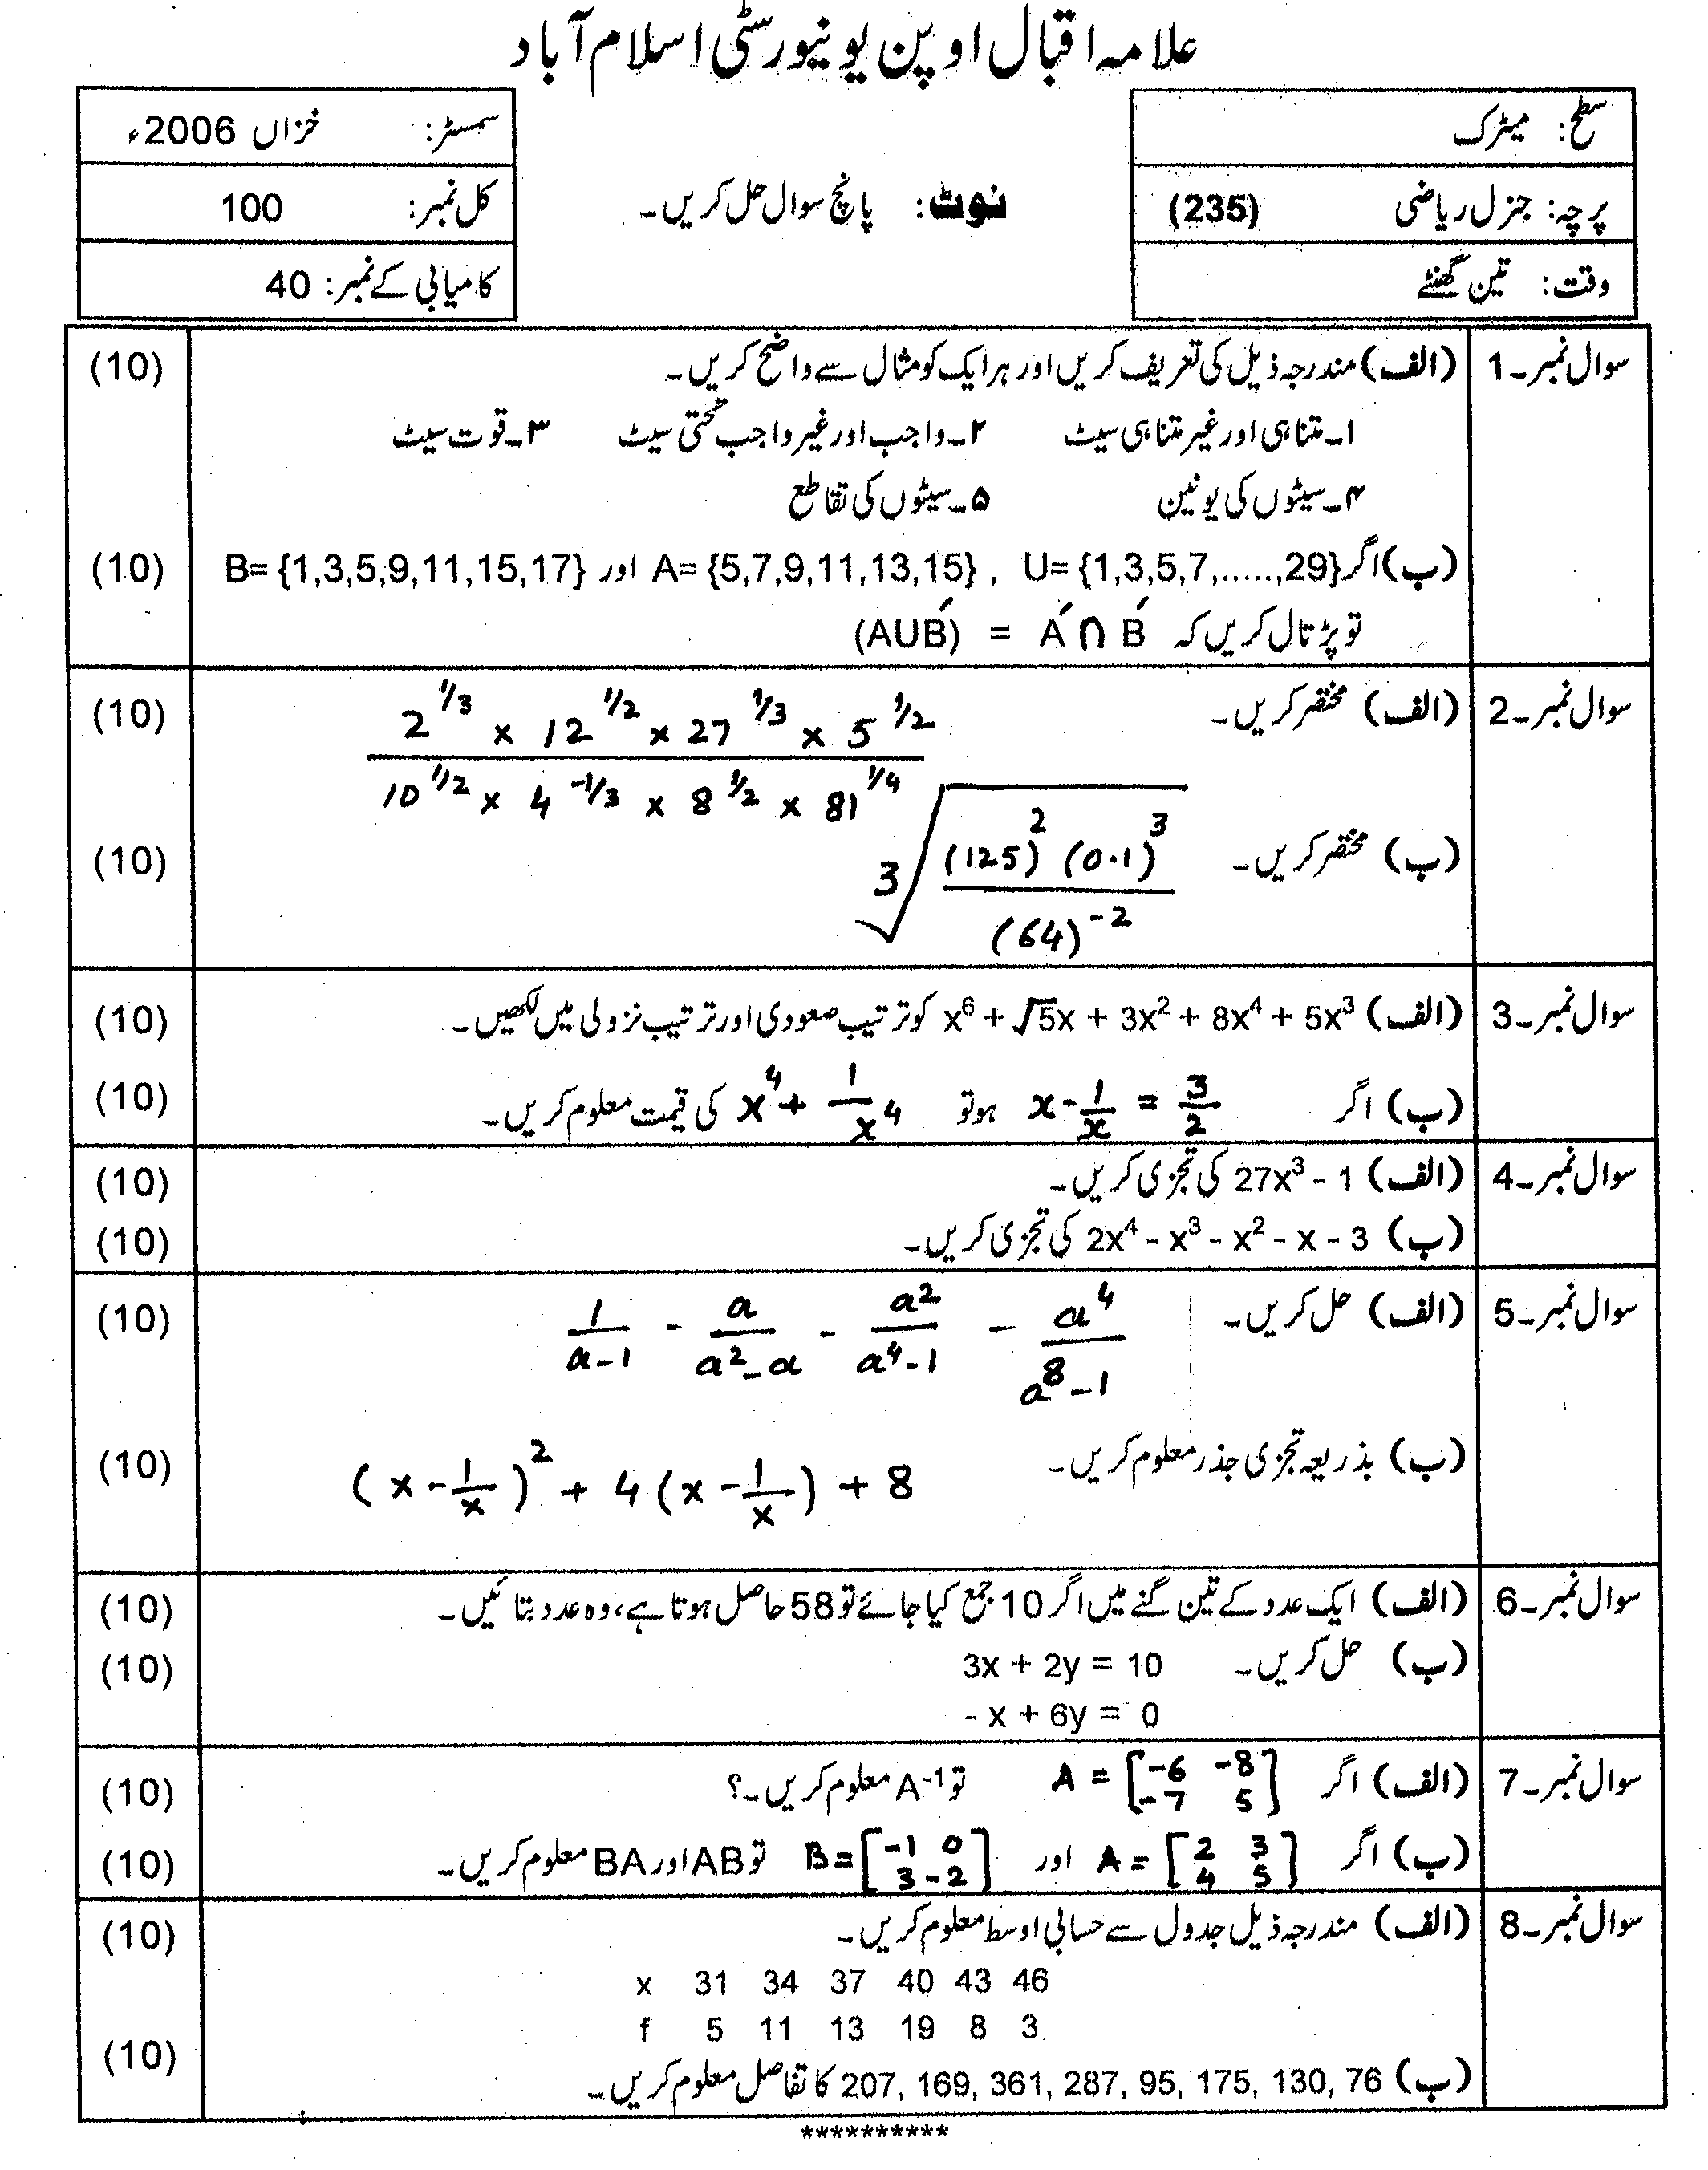 علامہ اقبال اوپن یونیورسٹی اسلام آباد
سطح: میٹرک
پرچہ: جنرل ریاضی (235)
وقت: تین گھنٹے
نوٹ: پانچ سوال حل کریں۔
سمسٹر: خزاں 2006ء
کل نمبر: 100
کامیابی کے نمبر: 40
سوال نمبر۔1 (الف) مندرجہ ذیل کی تعریف کریں اور ہر ایک کو مثال سے واضح کریں۔ (10)
۱۔ متناہی اور غیر متناہی سیٹ ۲۔ واجب اور غیر واجب تحتی سیٹ ۳۔ قوت سیٹ
۴۔ سیٹوں کی یونین ۵۔ سیٹوں کی تقاطع
(ب) اگر U= {1,3,5,7,.....,29} , A= {5,7,9,11,13,15} اور B= {1,3,5,9,11,15,17} (10)
تو پڑتال کریں کہ (AUB)́ = Á ∩ B́
سوال نمبر۔2 (الف) مختصر کریں۔ (10)
2^1/3 x 12^1/2 x 27^1/3 x 5^1/2
10^1/2 x 4^-1/3 x 8^1/2 x 81^1/4
(ب) مختصر کریں۔ 3√ (125)² (0.1)³ (10)
(64)⁻²
سوال نمبر۔3 (الف) x⁶ + √5x + 3x² + 8x⁴ + 5x³ کو ترتیب صعودی اور ترتیب نزولی میں لکھیں۔ (10)
(ب) اگر x - 1/x = 3/2 ہو تو x⁴ + 1/x⁴ کی قیمت معلوم کریں۔ (10)
سوال نمبر۔4 (الف) 27x³ - 1 کی تجزی کریں۔ (10)
(ب) 2x⁴ - x³ - x² - x - 3 کی تجزی کریں۔ (10)
سوال نمبر۔5 (الف) حل کریں۔ 1/a-1 - a/a²-a - a²/a⁴-1 - a⁴/a⁸-1 (10)
(ب) بذریعہ تجزی جذر معلوم کریں۔ (10)
(x - 1/x)² + 4(x - 1/x) + 8
سوال نمبر۔6 (الف) ایک عدد کے تین گنے میں اگر 10 جمع کیا جائے تو 58 حاصل ہوتا ہے، وہ عدد بتائیں۔ (10)
(ب) حل کریں۔ 3x + 2y = 10 (10)
- x + 6y = 0
سوال نمبر۔7 (الف) اگر A = [-6 -8 / -7 5] تو A⁻¹ معلوم کریں۔؟ (10)
(ب) اگر A = [2 3 / 4 5] اور B = [-1 0 / 3 -2] تو AB اور BA معلوم کریں۔ (10)
سوال نمبر۔8 (الف) مندرجہ ذیل جدول سے حسابی اوسط معلوم کریں۔ (10)
x 31 34 37 40 43 46
f 5 11 13 19 8 3
(ب) 207, 169, 361, 287, 95, 175, 130, 76 کا تفاصل معلوم کریں۔ (10)
**********